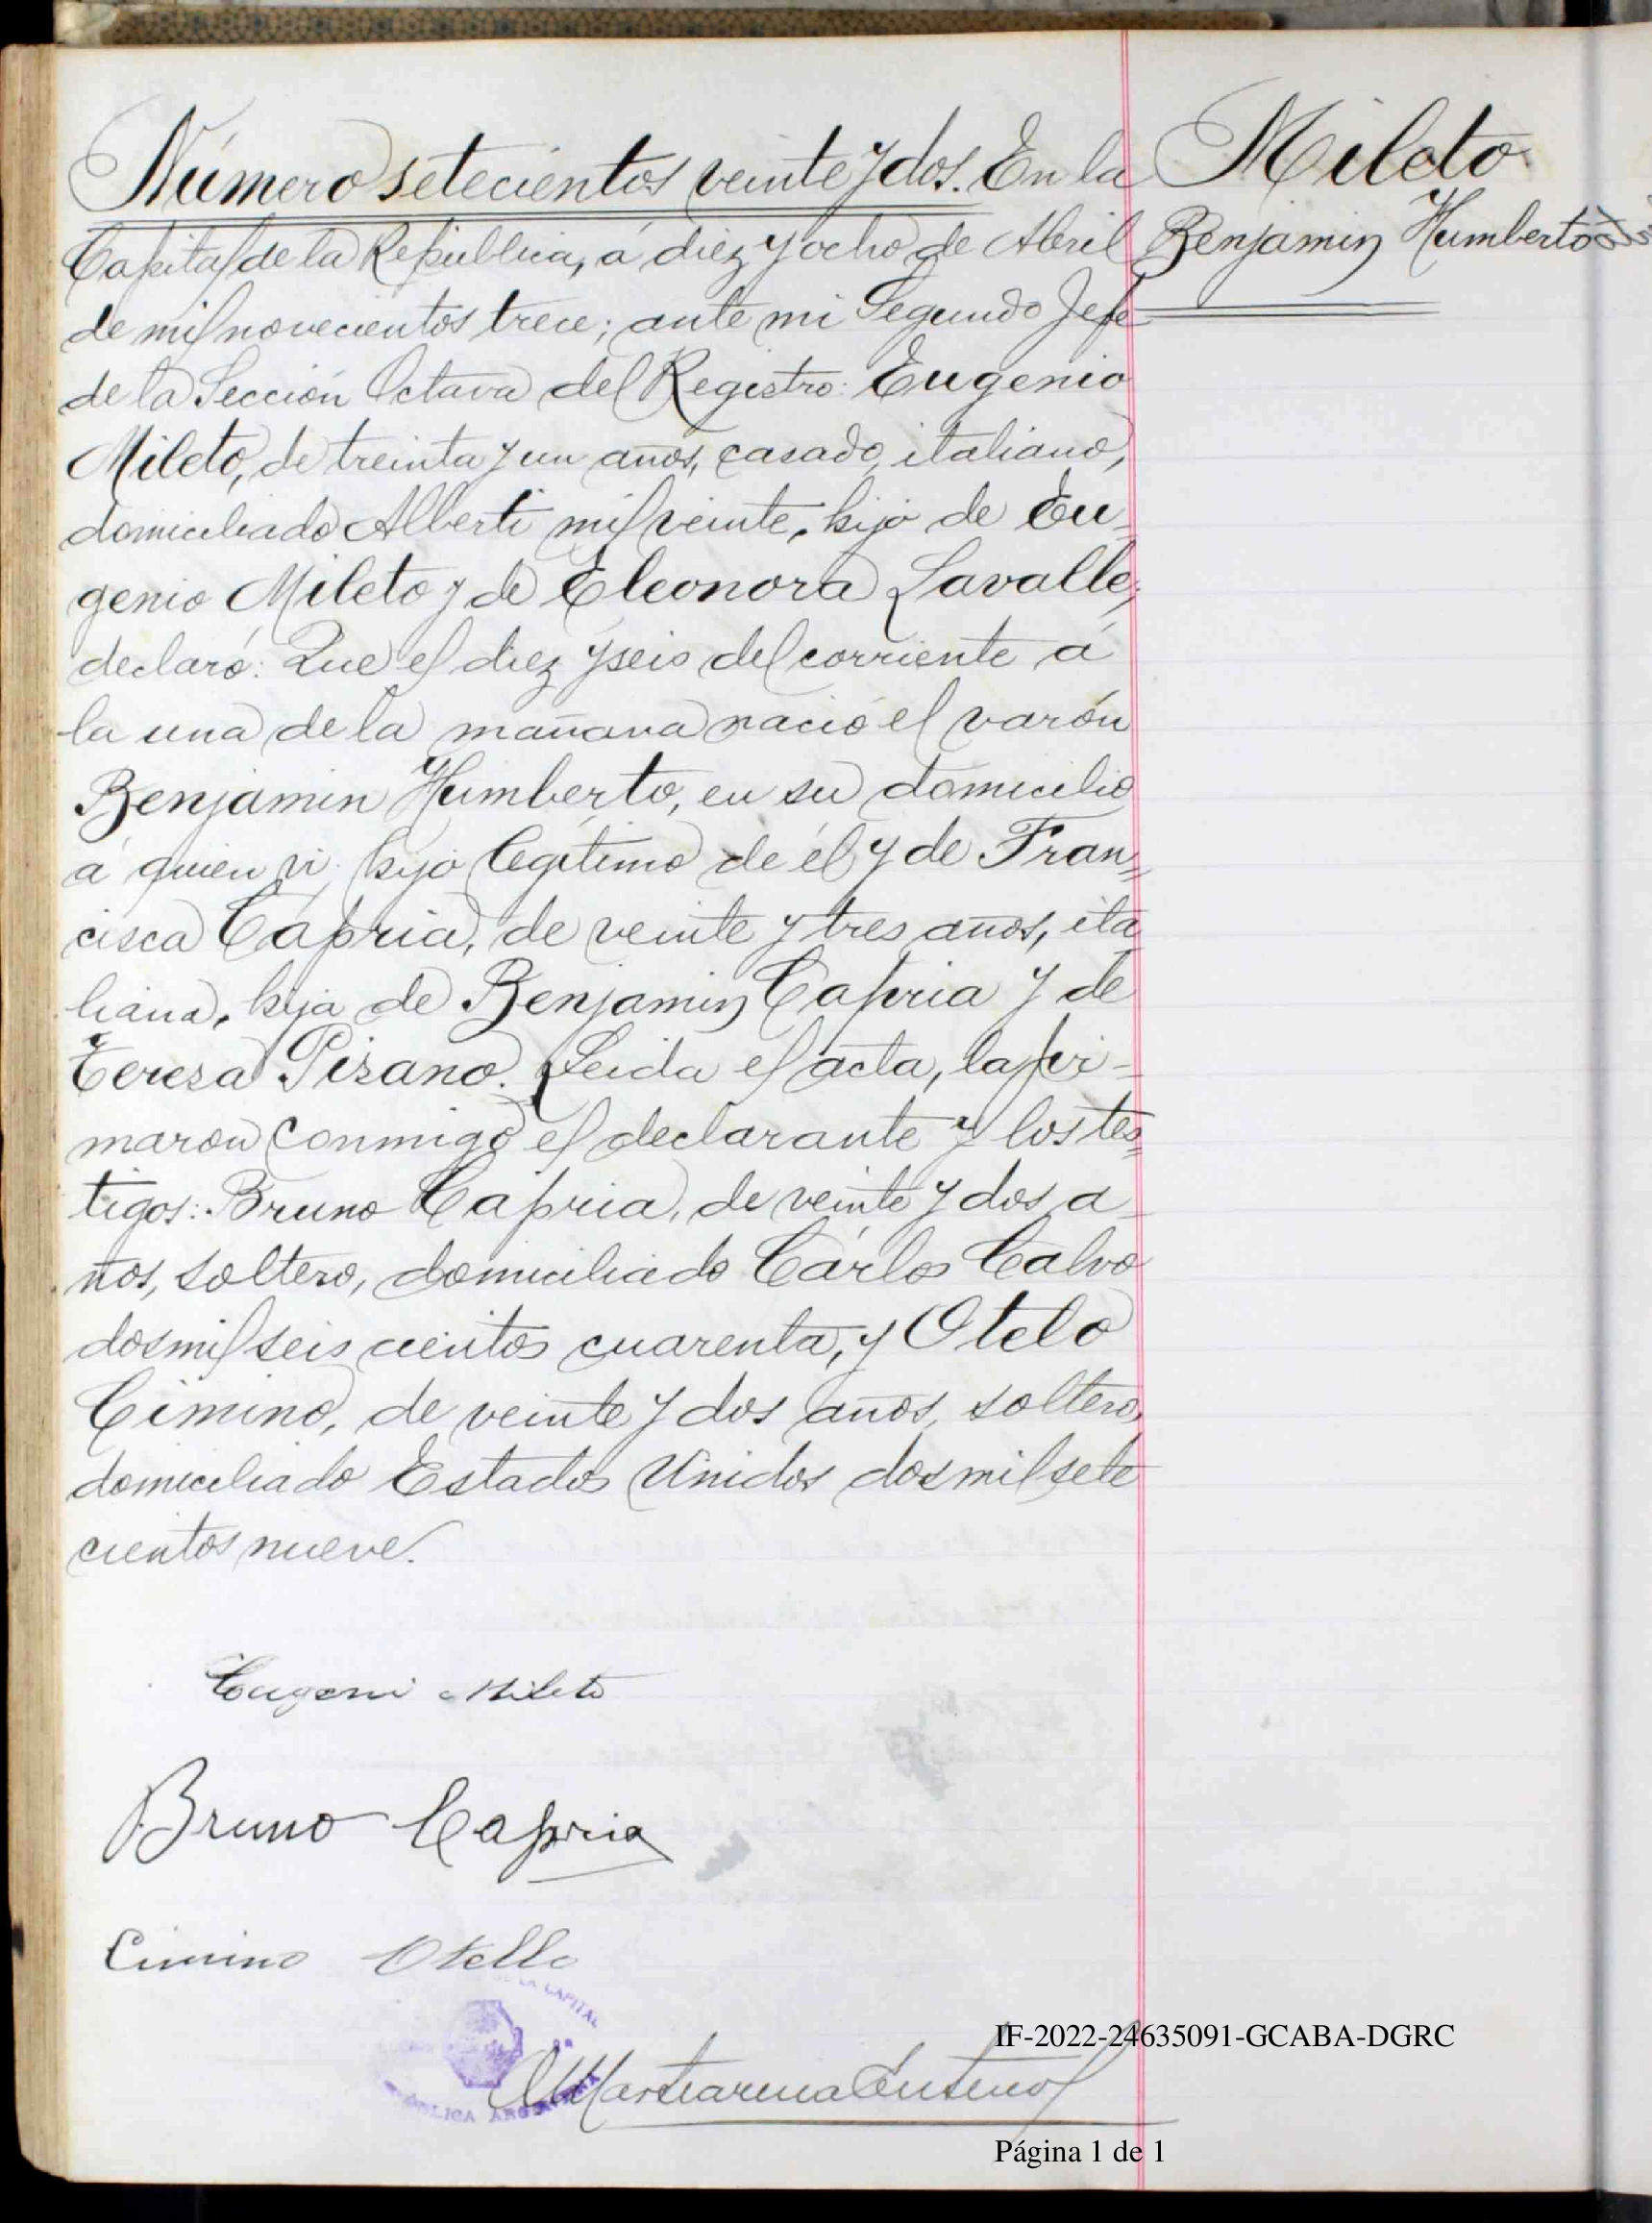 Número setecientos veinte y dos. En la
Capital de la República, á diez y ocho de Abril
de mil novecientos trece; ante mi Segundo Jefe
de la Sección Octava del Registro: Eugenio
Mileto, de treinta y un años, casado, italiano,
domiciliado Alberti mil veinte, hijo de Eu-
genio Mileto y de Eleonora Lavalle,
declaró: Que el diez y seis del corriente á
la una de la mañana nació el varón
Benjamin Humberto, en su domicilio
á quien vi, hijo legítimo de él y de Fran=
cisca Capria, de veinte y tres años, ita
liana, hija de Benjamin Capria y de
Teresa Pisano. Leida el acta, la fir-
maron conmigo el declarante y los tes=
tigos: Bruno Capria, de veinte y dos a-
ños, soltero, domiciliado Cárlos Calvo
dosmil seis cientos cuarenta, y Otelo
Cimino, de veinte y dos años, soltero,
domiciliado Estados Unidos dosmil sete
cientos nueve.
Mileto
Benjamin Humberto
Eugeni Mileto
Bruno Capria
Cimino Otello
LA CAPITAL
IF-2022-24635091-GCABA-DGRC
Página 1 de 1